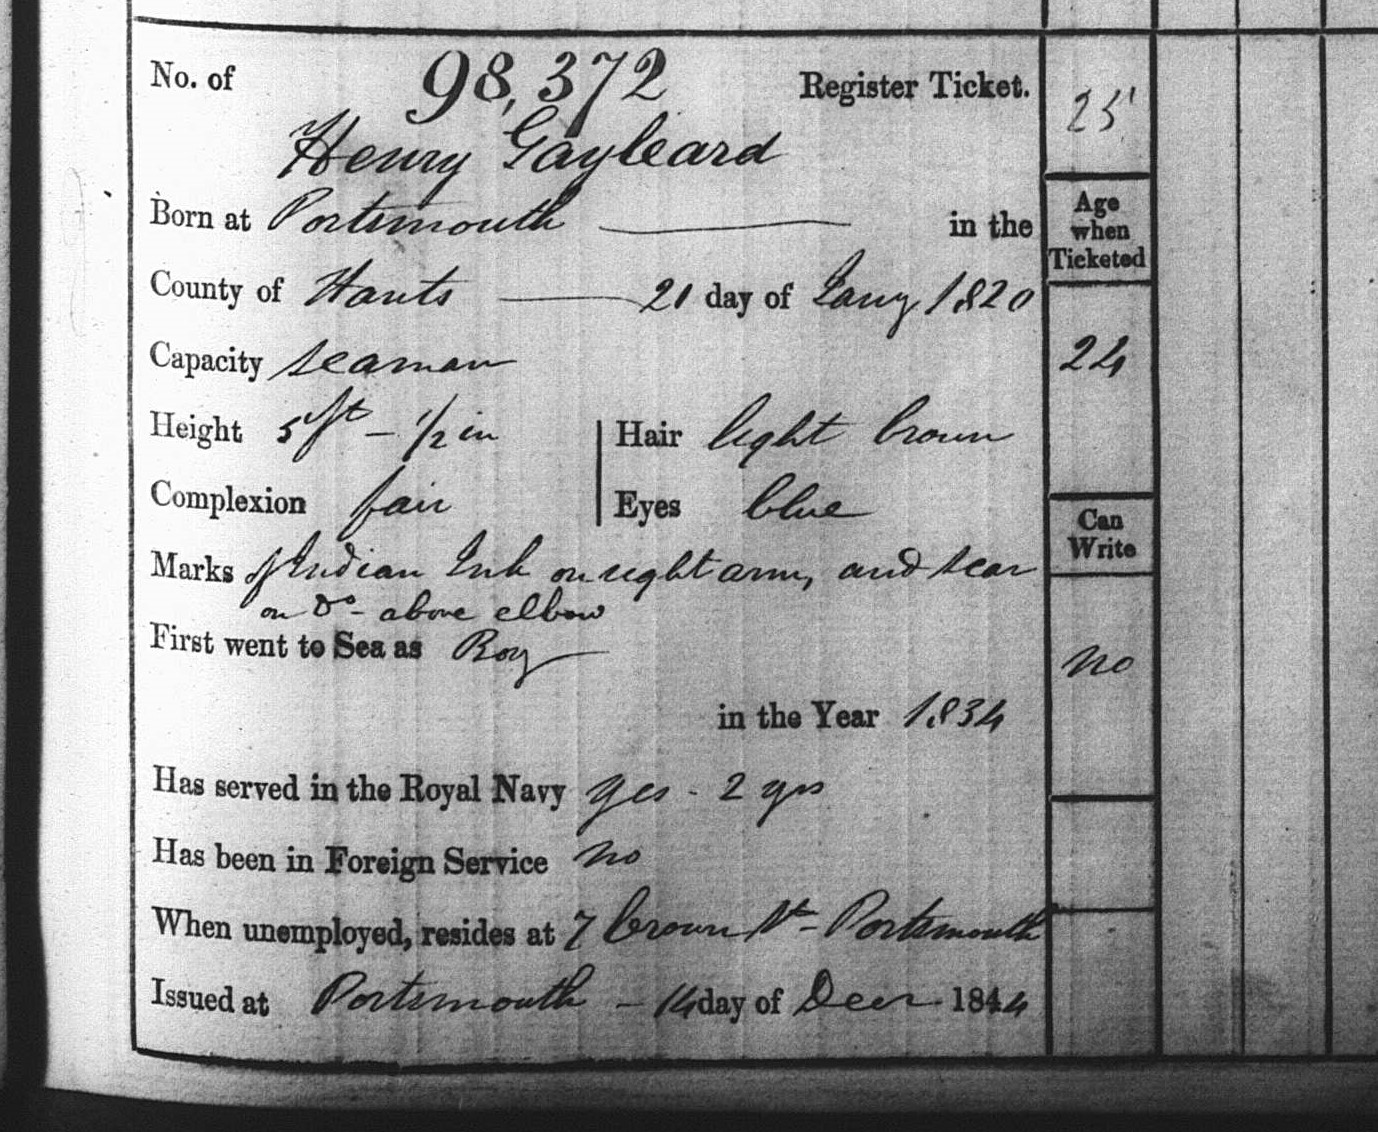 No. of 98,372 Register Ticket.
25
Henry Gayleard
Born at Portsmouth in the
Age when Ticketed
County of Hants 21 day of Jany 1820
24
Capacity seaman
Height 5ft - 1/2 in Hair light brown
Complexion fair Eyes blue
Can Write
Marks Indian Ink on right arm, and scar
on Do- above elbow
First went to Sea as Boy
no
in the Year 1834
Has served in the Royal Navy yes - 2 yrs
Has been in Foreign Service no
When unemployed, resides at 7 Crown St - Portsmouth
Issued at Portsmouth - 14 day of Decr 1844